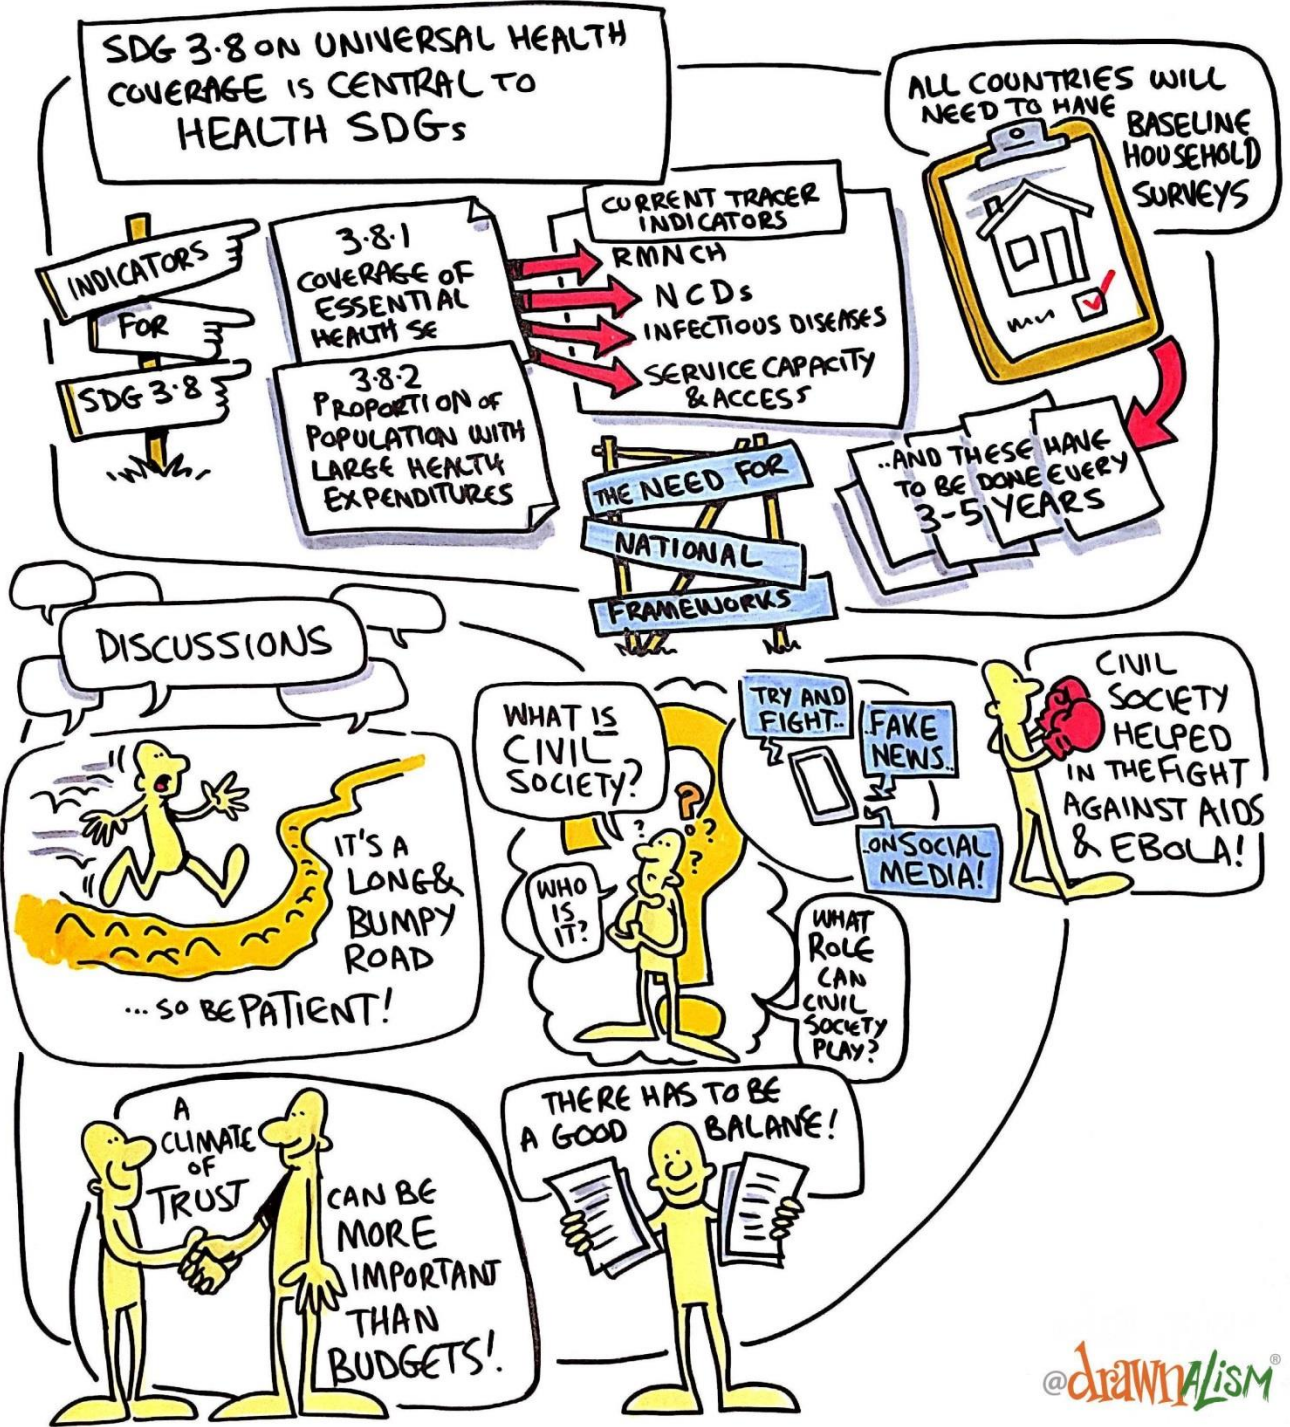 SDG 3.8 ON UNIVERSAL HEALTH
COVERAGE IS CENTRAL TO
HEALTH SDGs
ALL COUNTRIES WILL
NEED TO HAVE
BASELINE
HOUSEHOLD
SURVEYS
INDICATORS
FOR
SDG 3.8
3.8.1
COVERAGE OF
ESSENTIAL
HEALTH SE
3.8.2
PROPORTION OF
POPULATION WITH
LARGE HEALTH
EXPENDITURES
CURRENT TRACER
INDICATORS
RMNCH
NCDs
INFECTIOUS DISEASES
SERVICE CAPACITY
& ACCESS
..AND THESE HAVE
TO BE DONE EVERY
3-5 YEARS
THE NEED FOR
NATIONAL
FRAMEWORKS
DISCUSSIONS
IT'S A
LONG &
BUMPY
ROAD
... SO BE PATIENT!
WHAT IS
CIVIL
SOCIETY?
WHO
IS
IT?
?
?
?
?
?
WHAT
ROLE
CAN
CIVIL
SOCIETY
PLAY?
TRY AND
FIGHT..
..FAKE
NEWS..
..ON SOCIAL
MEDIA!
CIVIL
SOCIETY
HELPED
IN THE FIGHT
AGAINST AIDS
& EBOLA!
A
CLIMATE
OF
TRUST
CAN BE
MORE
IMPORTANT
THAN
BUDGETS!
THERE HAS TO BE
A GOOD BALANCE!
@drawnalism®